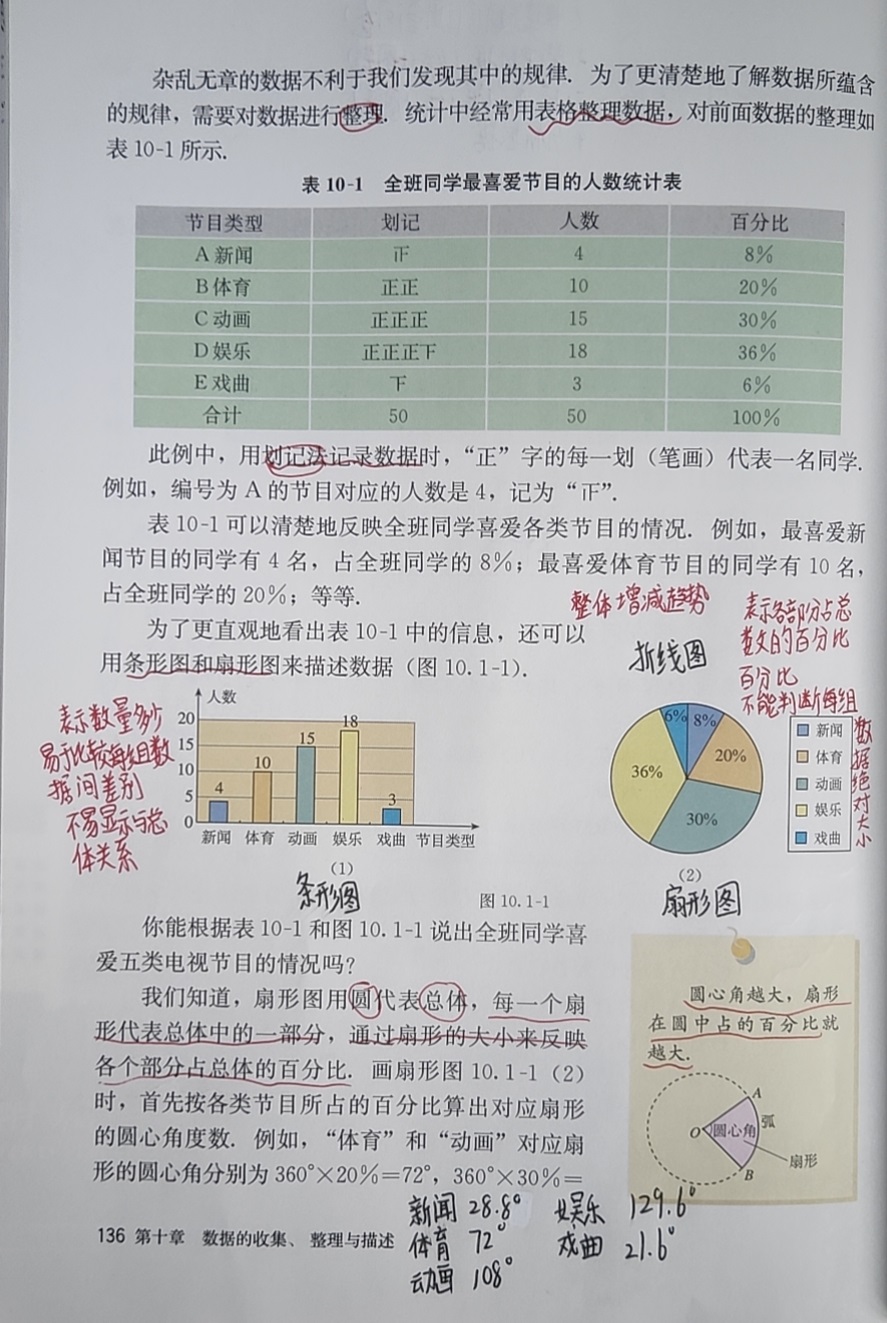 杂乱无章的数据不利于我们发现其中的规律. 为了更清楚地了解数据所蕴含
的规律，需要对数据进行整理. 统计中经常用表格整理数据，对前面数据的整理如
表 10-1 所示.
表 10-1 全班同学最喜爱节目的人数统计表
节目类型 划记 人数 百分比
A 新闻 4 8%
B 体育 正正 10 20%
C 动画 正正正 15 30%
D 娱乐 正正正下 18 36%
E 戏曲 下 3 6%
合计 50 50 100%
此例中，用划记法记录数据时，“正”字的每一划（笔画）代表一名同学.
例如，编号为 A 的节目对应的人数是 4，记为“”.
表 10-1 可以清楚地反映全班同学喜爱各类节目的情况. 例如，最喜爱新
闻节目的同学有 4 名，占全班同学的 8%；最喜爱体育节目的同学有 10 名，
占全班同学的 20%；等等.
为了更直观地看出表 10-1 中的信息，还可以
用条形图和扇形图来描述数据（图 10.1-1）.
整体增减趋势
折线图
表示各部分占总
数的百分比
百分比
不能判断每组
数据绝对大小
表示数量多少
易于比较每组数
据间差别
不易显示与总
体关系
人数
20
15
10
5
0
4
10
15
18
3
新闻 体育 动画 娱乐 戏曲 节目类型
(1)
条形图
6% 8%
20%
36%
30%
新闻
体育
动画
娱乐
戏曲
(2)
扇形图
图 10.1-1
你能根据表 10-1 和图 10.1-1 说出全班同学喜
爱五类电视节目的情况吗？
我们知道，扇形图用圆代表总体，每一个扇
形代表总体中的一部分，通过扇形的大小来反映
各个部分占总体的百分比. 画扇形图 10.1-1（2）
时，首先按各类节目所占的百分比算出对应扇形
的圆心角度数. 例如，“体育”和“动画”对应扇
形的圆心角分别为 360°×20%=72°，360°×30%=
圆心角越大，扇形
在圆中占的百分比就
越大.
A
弧
O 圆心角
扇形
B
新闻 28.8° 娱乐 129.6°
体育 72° 戏曲 21.6°
动画 108°
136 第十章 数据的收集、整理与描述